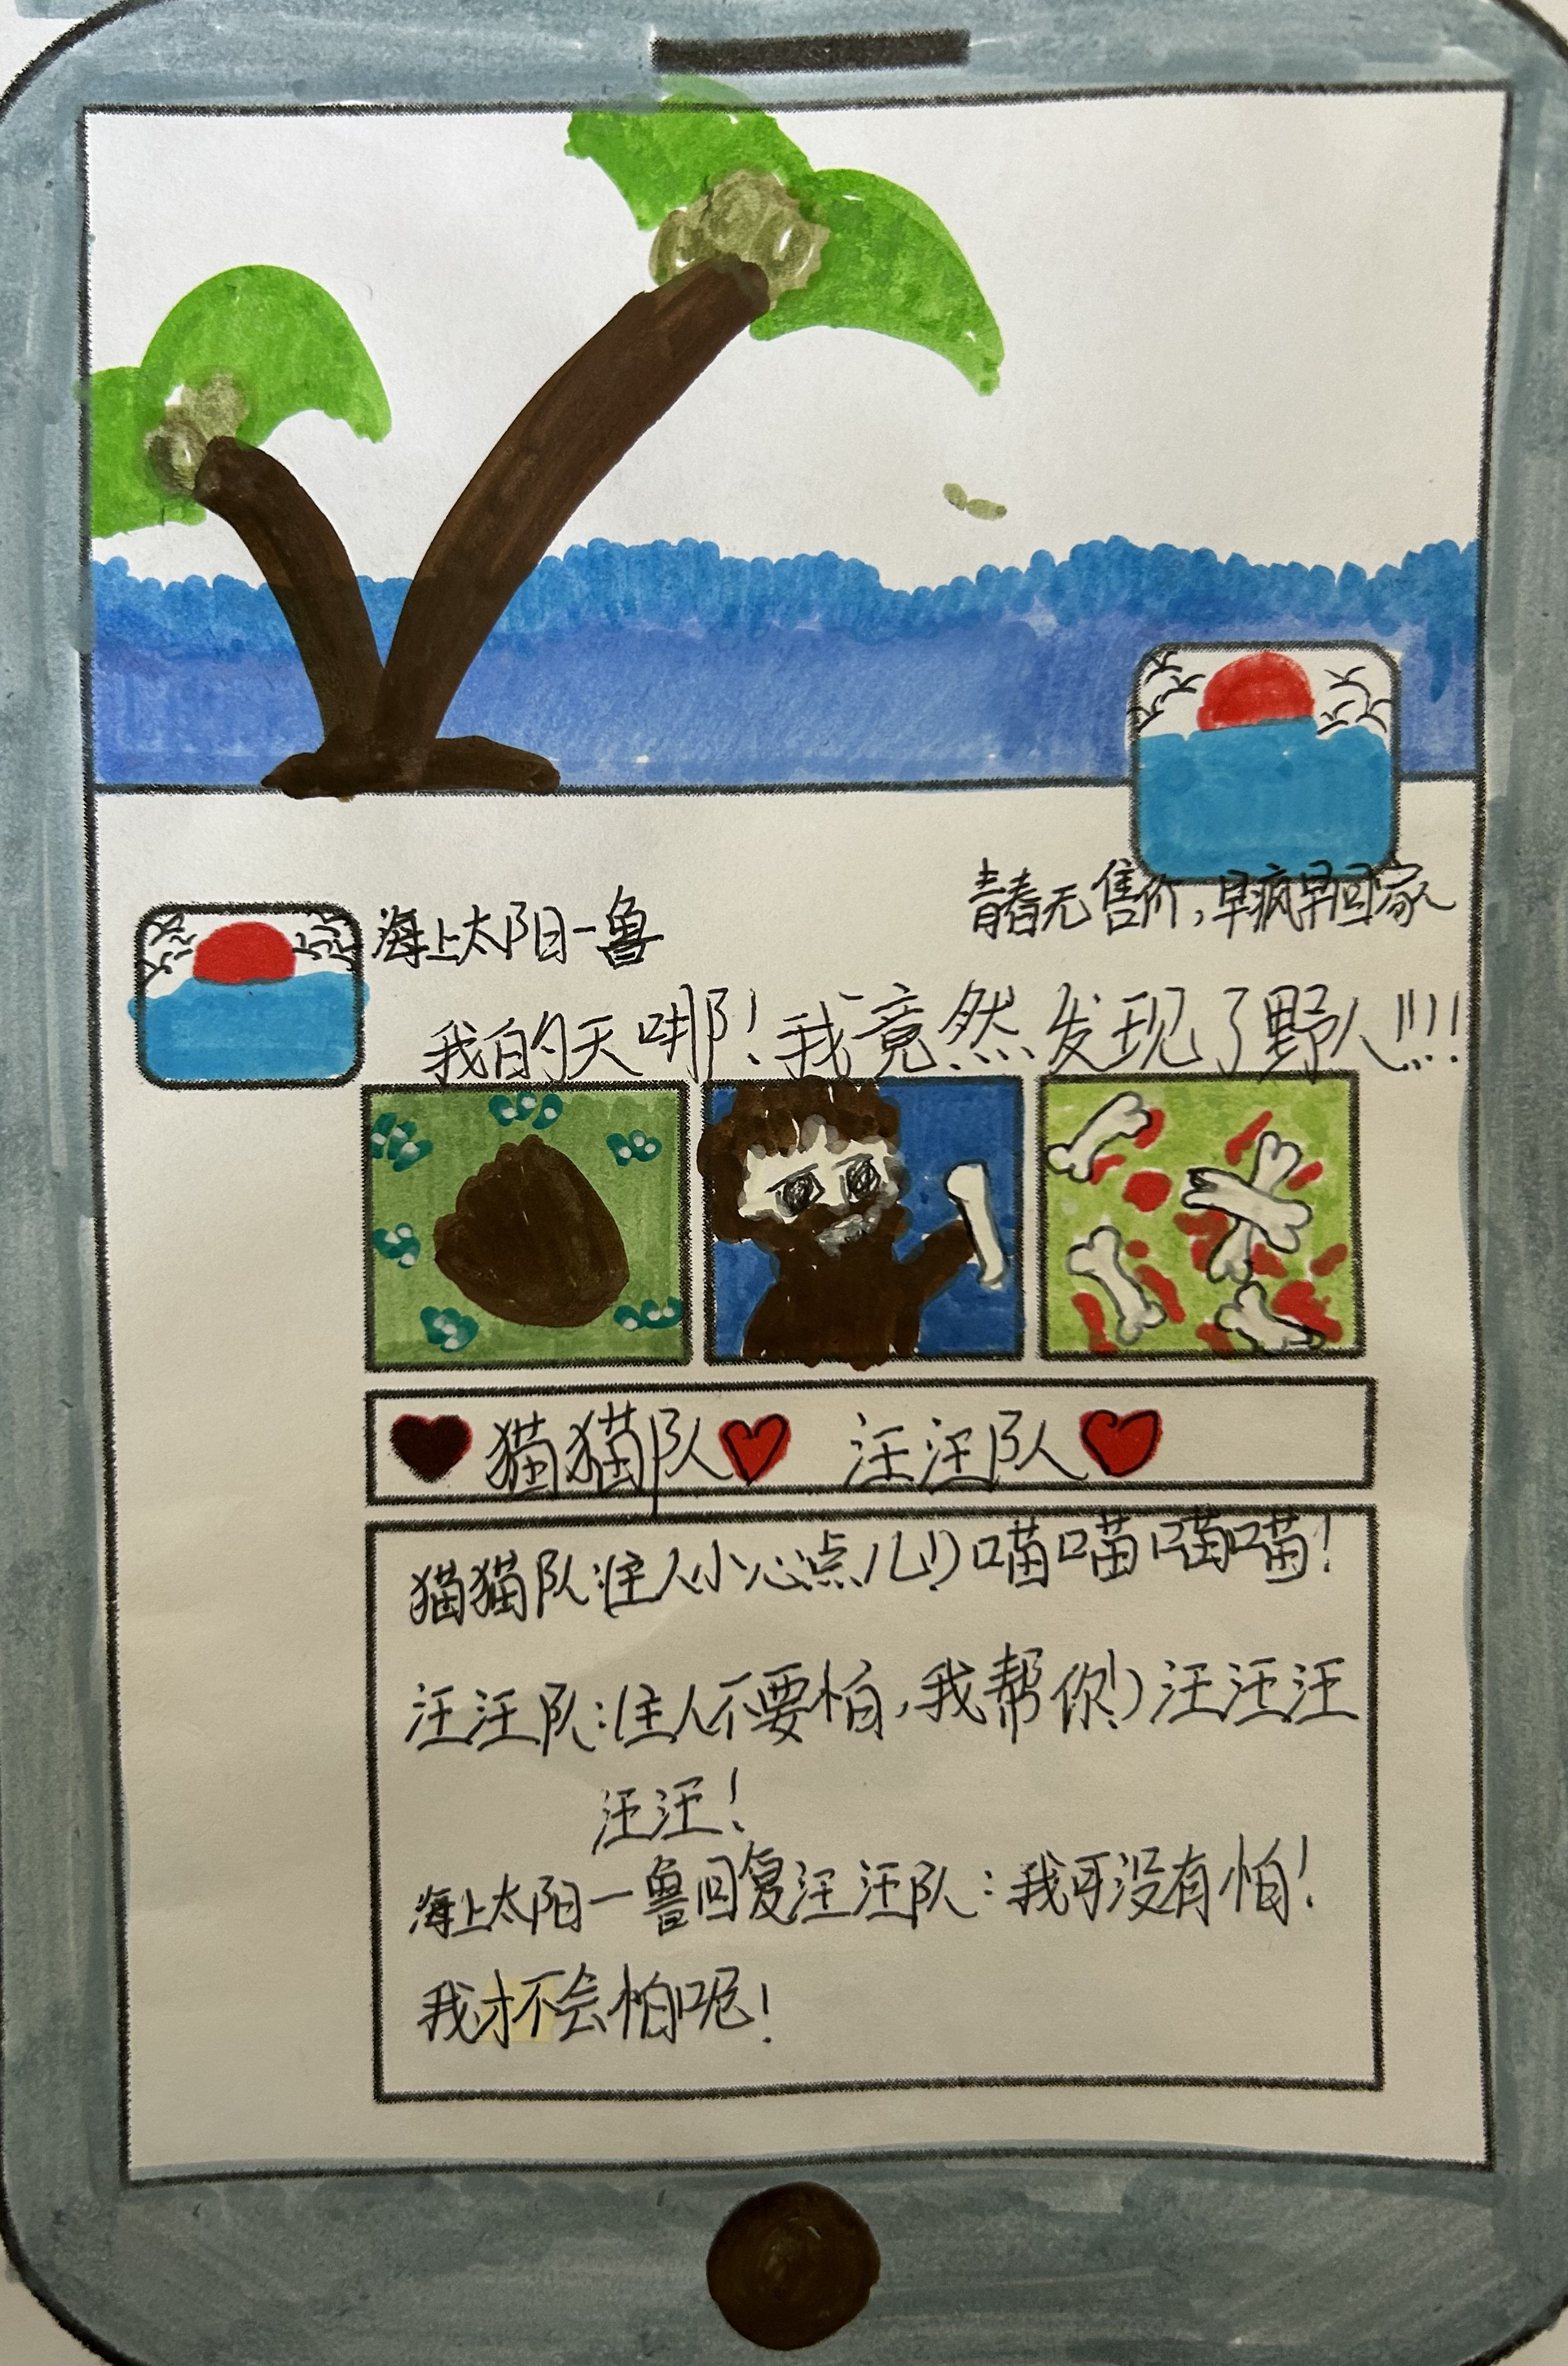 青春无售价,早疯早回家
海上太阳一兽
我的天啡!我竟然发现了野人!!!!
猫猫队 汪汪队
猫猫队:(主人小心点儿!)喵喵喵喵!
汪汪队:(主人不要怕,我帮你!)汪汪汪
汪汪!
海上太阳一兽回复汪汪队:我可没有怕!
我才不会怕呢!